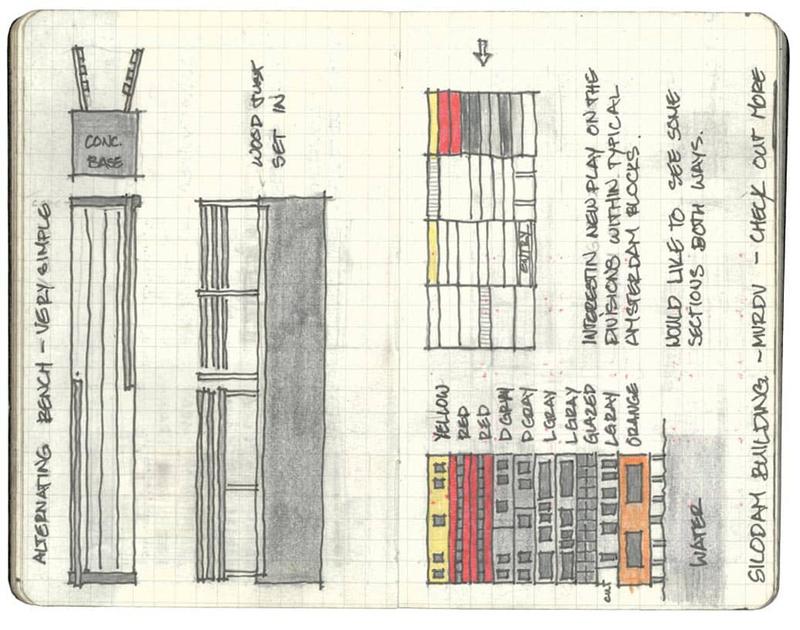 ALTERNATING BENCH - VERY SIMPLE
CONC.
BASE
WOOD JUST
SET IN
ENTRY
INTERESTING NEW PLAY ON THE
DIVISIONS WITHIN TYPICAL
AMSTERDAM BLOCKS.
WOULD LIKE TO SEE SOME
SECTIONS BOTH WAYS.
YELLOW
RED
RED
D GRAY
D GRAY
L GRAY
L GRAY
GLAZED
L GRAY
ORANGE
cut
WATER
SILODAM BUILDING - MVRDV - CHECK OUT MORE